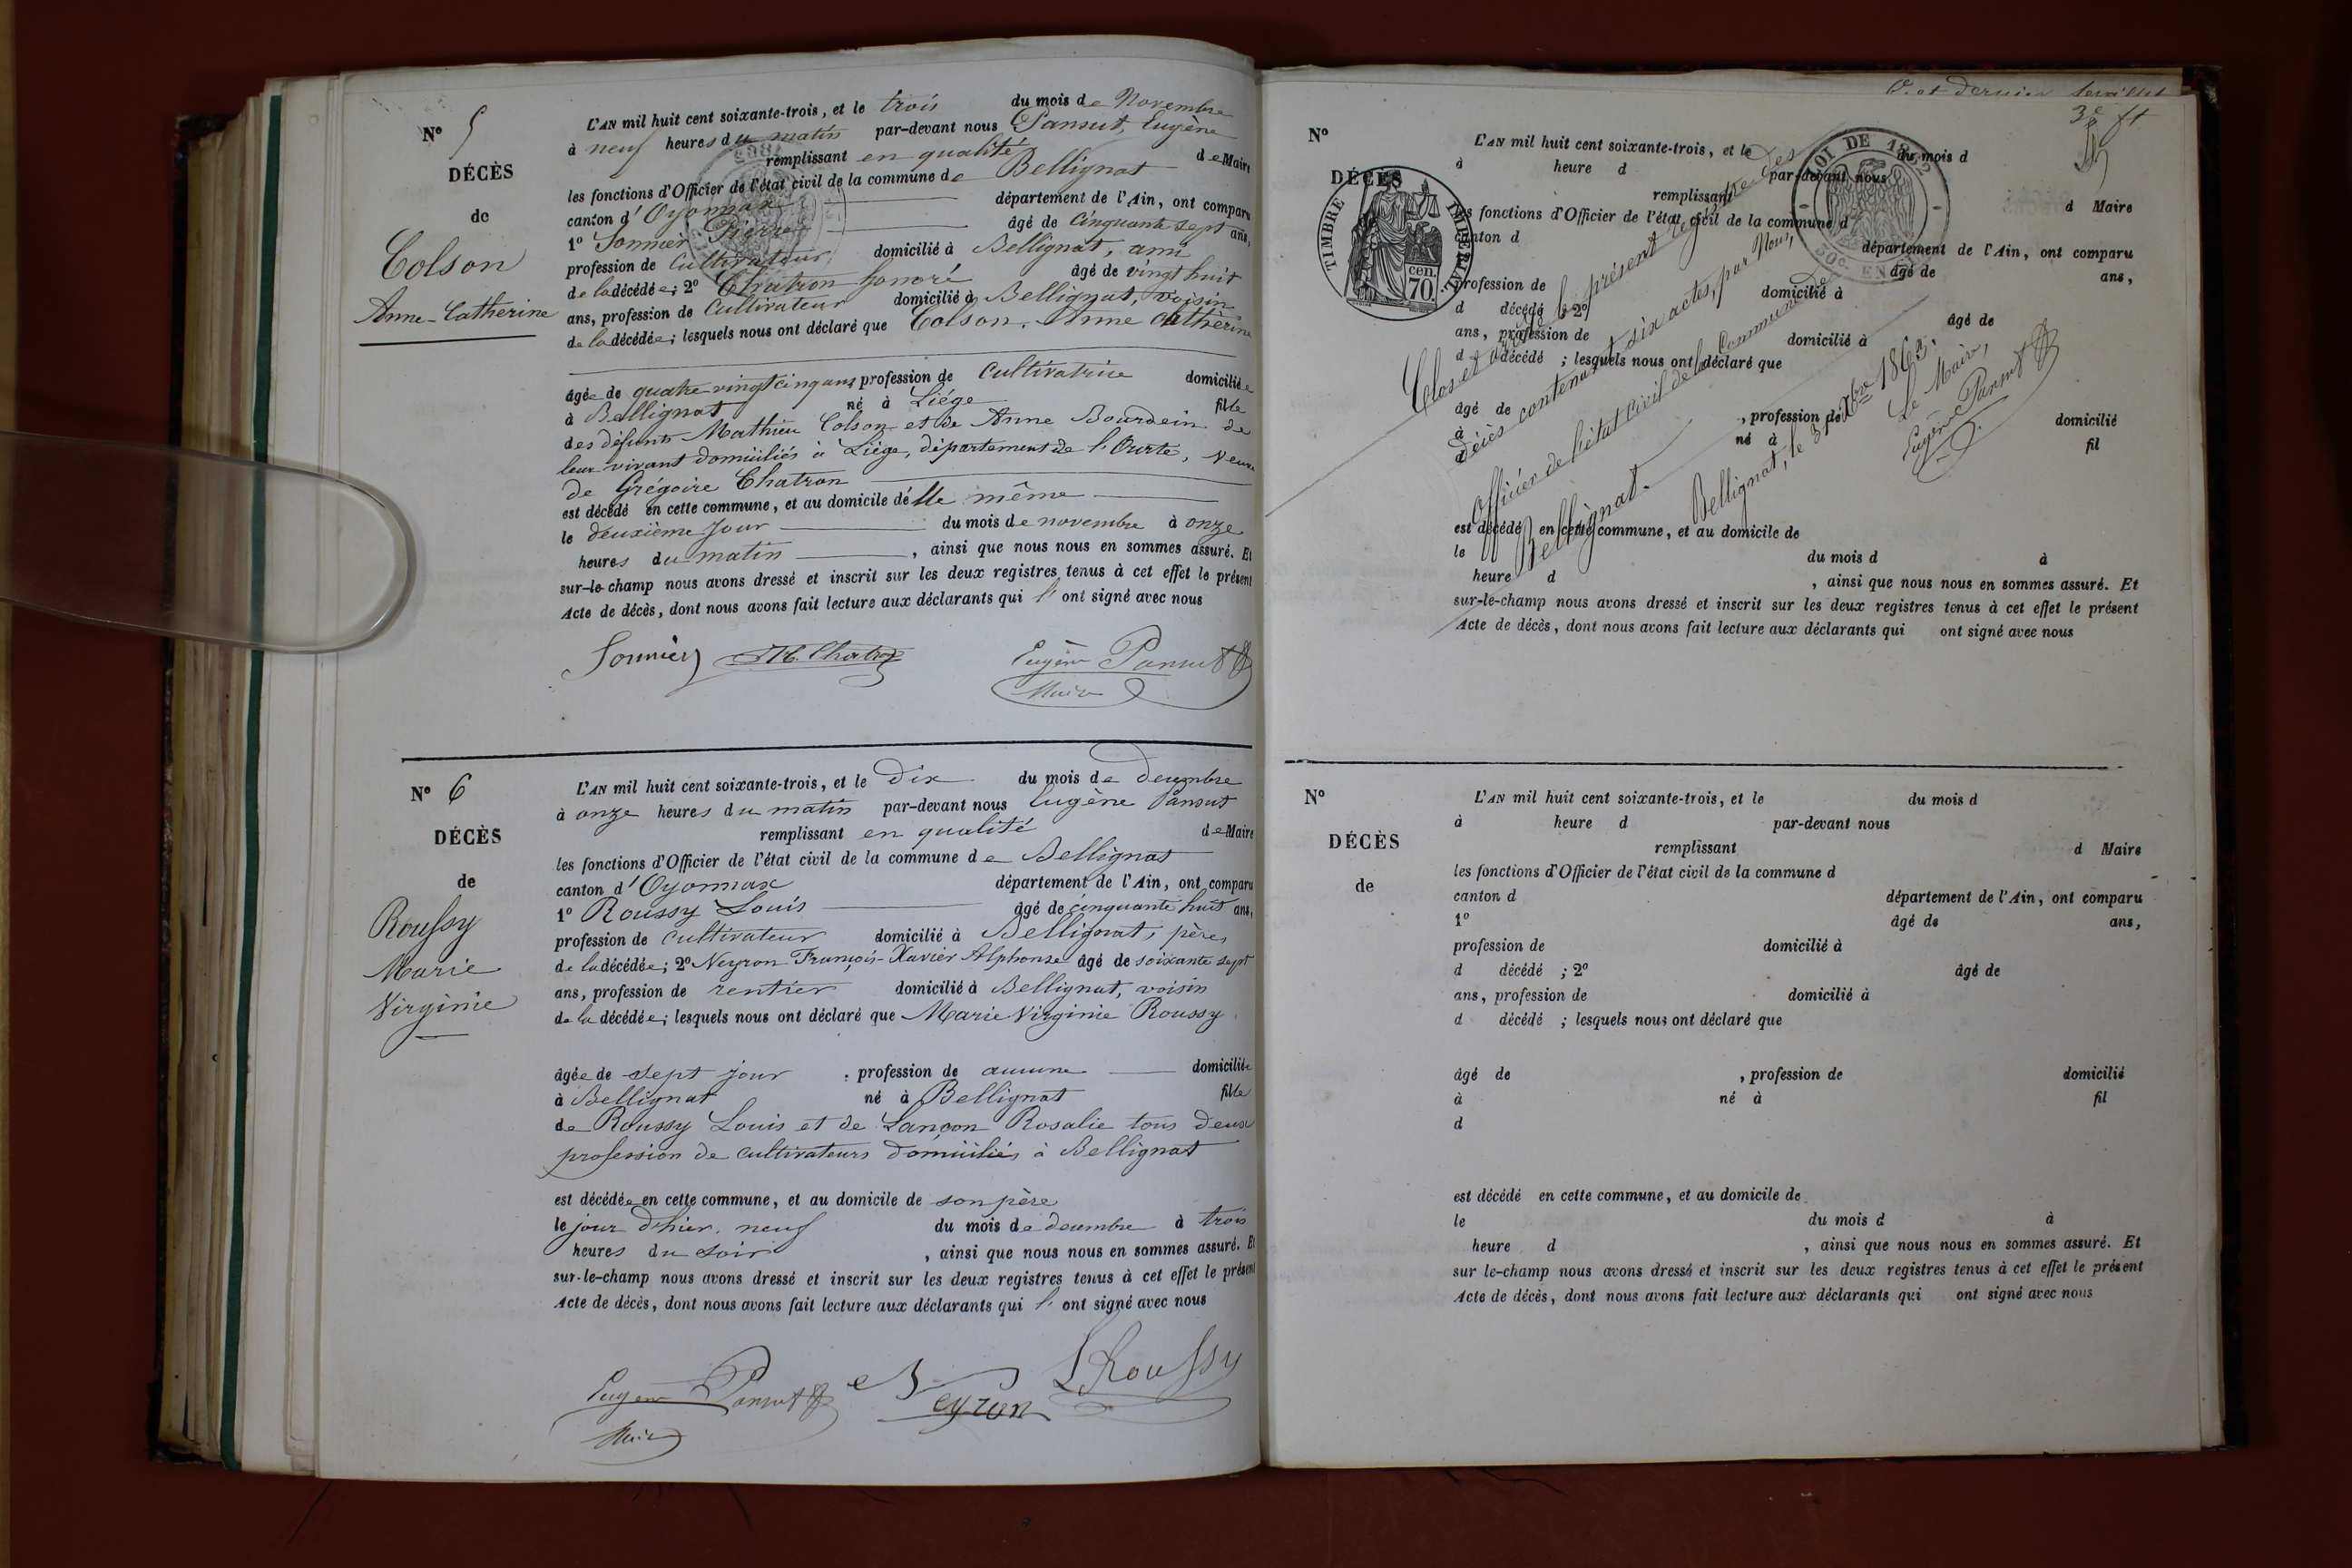 N° 5
DÉCÈS
de
Colson
Anne-Catherine
L'AN mil huit cent soixante-trois, et le trois du mois de Novembre
à neuf heures du matin par-devant nous Pansut, Eugène
remplissant en qualité de Maire
les fonctions d'Officier de l'état civil de la commune de Bellignat
canton d'Oyonnax département de l'Ain, ont comparu
1° Sonnier Pierre âgé de cinquante sept ans,
profession de cultivateur domicilié à Bellignat, ami
de la décédée; 2° Chatron honoré âgé de vingt huit
ans, profession de cultivateur domicilié à Bellignat, voisin
de la décédée; lesquels nous ont déclaré que Colson, Anne Cathèrine
âgée de quatre vingt cinq ans profession de cultivatrice domiciliée
à Bellignat né à Liége fille
des défunts Mathieu Colson et de Anne Bourdein de
leur vivant domiciliés à Liége, département de l'Ourte, veuve
de Grégoire Chatron
est décédé en cette commune, et au domicile d'elle même
le deuxième jour du mois de novembre à onze
heures du matin, ainsi que nous nous en sommes assuré. Et
sur-le-champ nous avons dressé et inscrit sur les deux registres tenus à cet effet le présent
Acte de décès, dont nous avons fait lecture aux déclarants qui l' ont signé avec nous
Sonnier H. Chatron Eugène Pansut
Maire
N° 6
DÉCÈS
de
Roussy
Marie
Virginie
L'AN mil huit cent soixante-trois, et le dix du mois de decembre
à onze heures du matin par-devant nous Eugène Pansut
remplissant en qualité de Maire
les fonctions d'Officier de l'état civil de la commune de Bellignat
canton d'Oyonnax département de l'Ain, ont comparu
1° Roussy Louis âgé de cinquante huit ans,
profession de cultivateur domicilié à Bellignat, père
de la décédée; 2° Neyron François-Xavier Alphonse âgé de soixante sept
ans, profession de rentier domicilié à Bellignat, voisin
de la décédée; lesquels nous ont déclaré que Marie Virginie Roussy
âgée de sept jour, profession de aucune domiciliée
à Bellignat né à Bellignat fille
de Roussy Louis et de Lançon Rosalie tous deux
profession de cultivateurs domiciliés à Bellignat
est décédée en cette commune, et au domicile de son père
le jour d'hier neuf du mois de decembre à trois
heures du soir, ainsi que nous nous en sommes assuré. Et
sur-le-champ nous avons dressé et inscrit sur les deux registres tenus à cet effet le présent
Acte de décès, dont nous avons fait lecture aux déclarants qui l' ont signé avec nous
Eugène Pansut Neyron L Roussy
Maire
et dernier feuillet
3e ft
N°
DÉCÈS
TIMBRE IMPERIAL
70 cen.
LOI DE 1862
30c. EN
L'AN mil huit cent soixante-trois, et le du mois d
à heure d par-devant nous
remplissant d Maire
les fonctions d'Officier de l'état civil de la commune d
canton d département de l'Ain, ont comparu
âgé de ans,
profession de domicilié à
d décédé ; 2° âgé de
ans, profession de domicilié à
d décédé ; lesquels nous ont déclaré que
âgé de , profession de domicilié
à né à fil
d
est décédé en cette commune, et au domicile de
le du mois d à
heure d , ainsi que nous nous en sommes assuré. Et
sur-le-champ nous avons dressé et inscrit sur les deux registres tenus à cet effet le présent
Acte de décès, dont nous avons fait lecture aux déclarants qui ont signé avec nous
Clos et arrêté le présent registre des
décès contenant six actes, par Nous,
Officier de l'état civil de la Commune de
Bellignat.
Bellignat, le 31 Xbre 1863.
Le Maire,
Eugène Pansut
N°
DÉCÈS
de
L'AN mil huit cent soixante-trois, et le du mois d
à heure d par-devant nous
remplissant d Maire
les fonctions d'Officier de l'état civil de la commune d
canton d département de l'Ain, ont comparu
1° âgé de ans,
profession de domicilié à
d décédé ; 2° âgé de
ans, profession de domicilié à
d décédé ; lesquels nous ont déclaré que
âgé de , profession de domicilié
à né à fil
d
est décédé en cette commune, et au domicile de
le du mois d à
heure d , ainsi que nous nous en sommes assuré. Et
sur le-champ nous avons dressé et inscrit sur les deux registres tenus à cet effet le présent
Acte de décès, dont nous avons fait lecture aux déclarants qui ont signé avec nous